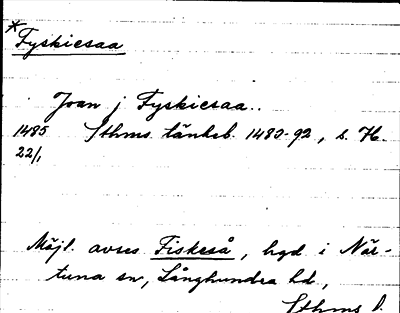 *Fyskiesaa
Joan j Fyskiesaa..
1485 Sthms tänkeb. 1483-92, s. 76.
22/1
Möjl. avses Fiskeså, bgd i När-
tuna sn, Långhundra hd,
Sthms l.